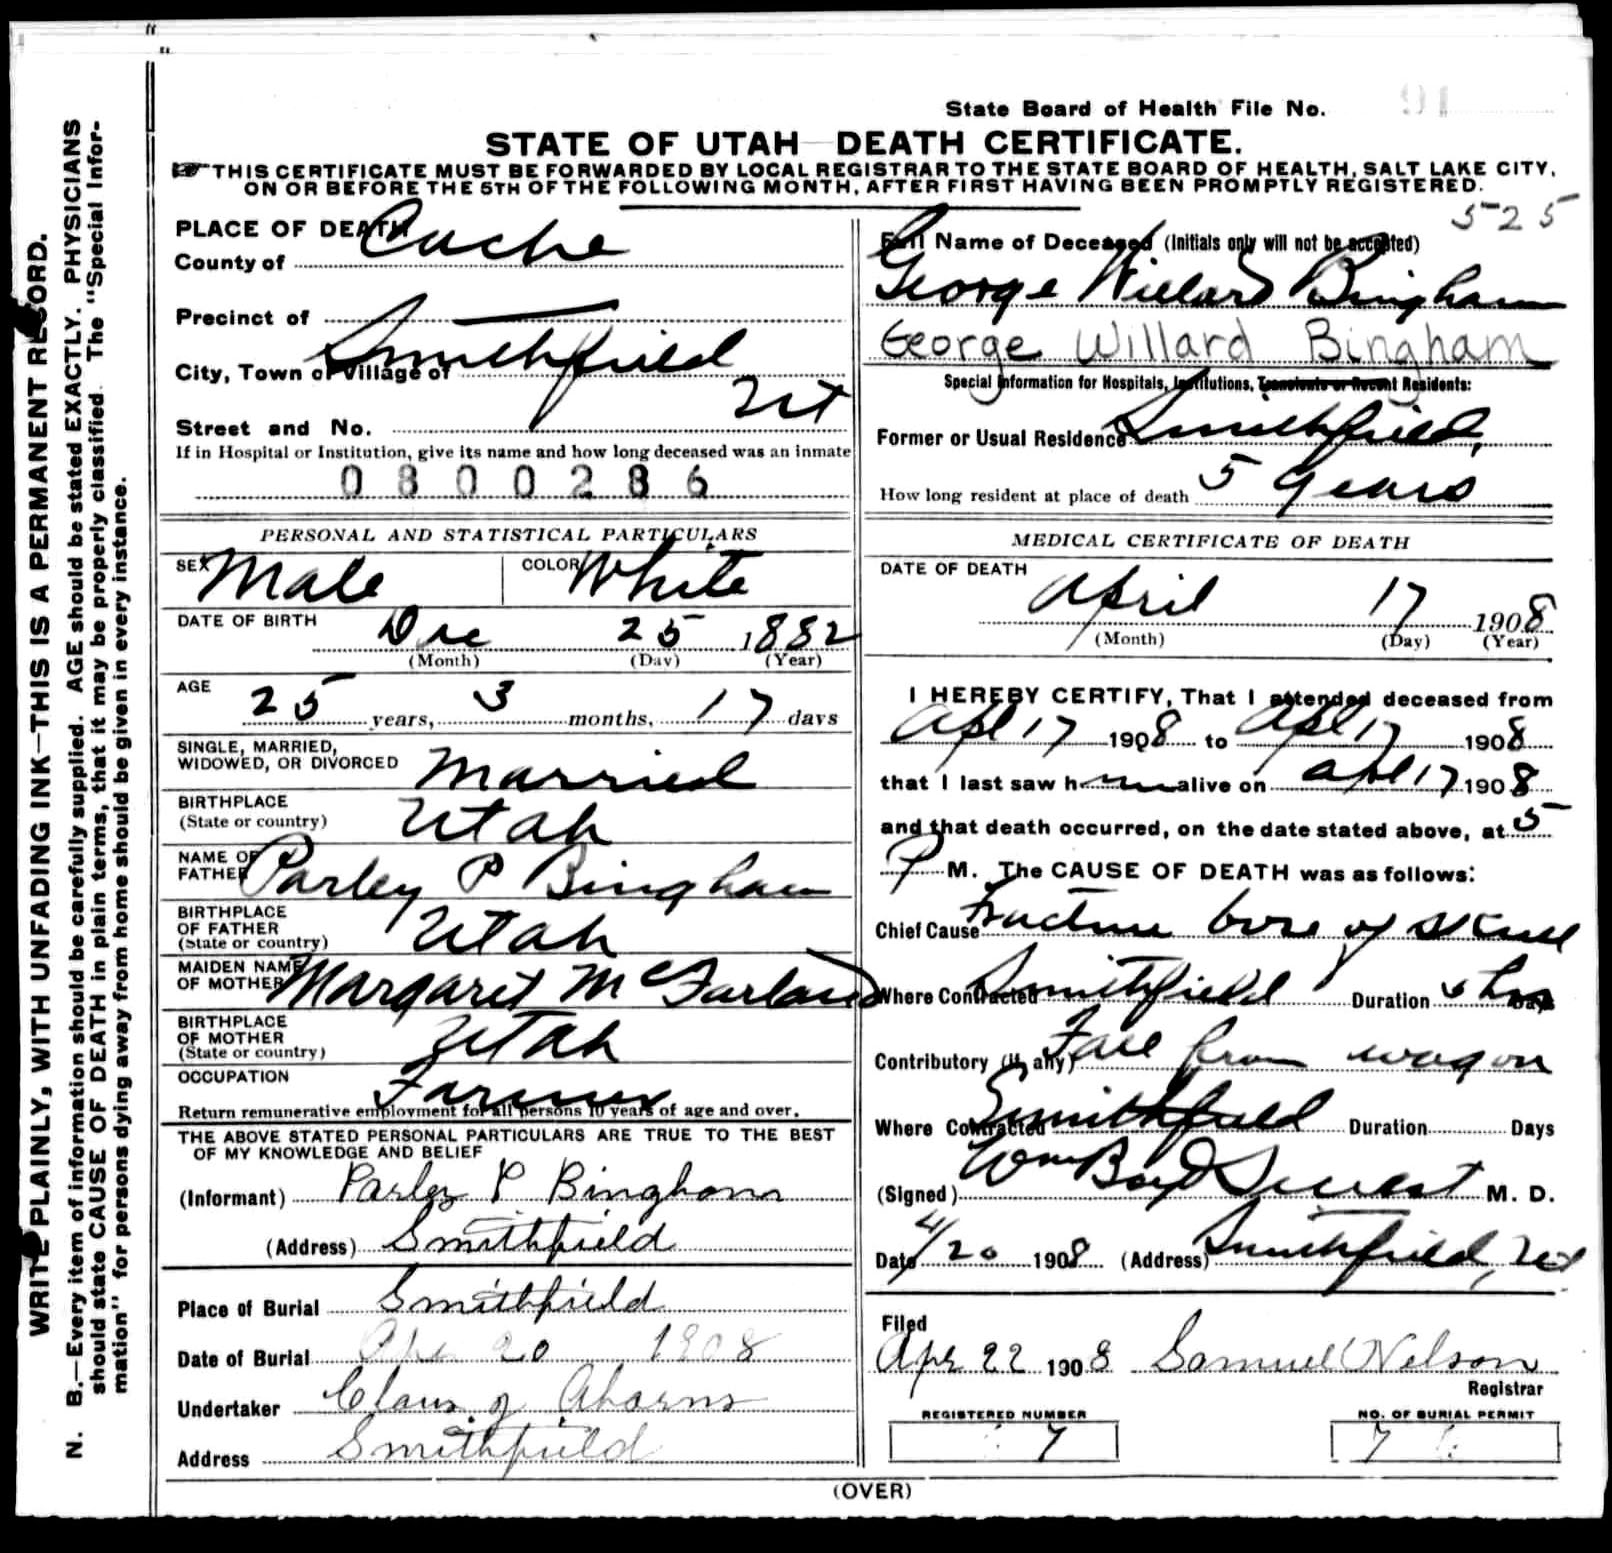 State Board of Health File No. 91
STATE OF UTAH—DEATH CERTIFICATE.
THIS CERTIFICATE MUST BE FORWARDED BY LOCAL REGISTRAR TO THE STATE BOARD OF HEALTH, SALT LAKE CITY,
ON OR BEFORE THE 5TH OF THE FOLLOWING MONTH, AFTER FIRST HAVING BEEN PROMPTLY REGISTERED.
525
WRITE PLAINLY, WITH UNFADING INK—THIS IS A PERMANENT RECORD.
N. B.—Every item of information should be carefully supplied. AGE should be stated EXACTLY. PHYSICIANS
should state CAUSE OF DEATH in plain terms, that it may be properly classified. The "Special Infor-
mation" for persons dying away from home should be given in every instance.
PLACE OF DEATH
County of Cache
Precinct of —
City, Town or Village of Smithfield
Ut
Street and No.
If in Hospital or Institution, give its name and how long deceased was an inmate
0800286
PERSONAL AND STATISTICAL PARTICULARS
SEX Male COLOR White
DATE OF BIRTH Dec 25 1882
(Month) (Day) (Year)
AGE 25 years, 3 months, 17 days
SINGLE, MARRIED,
WIDOWED, OR DIVORCED Married
BIRTHPLACE
(State or country) Utah
NAME OF
FATHER Parley P Bingham
BIRTHPLACE
OF FATHER
(State or country) Utah
MAIDEN NAME
OF MOTHER Margaret McFarland
BIRTHPLACE
OF MOTHER
(State or country) Utah
OCCUPATION Farmer
Return remunerative employment for all persons 10 years of age and over.
THE ABOVE STATED PERSONAL PARTICULARS ARE TRUE TO THE BEST
OF MY KNOWLEDGE AND BELIEF
(Informant) Parley P Bingham
(Address) Smithfield
Place of Burial Smithfield
Date of Burial Apr 20 1908
Undertaker
Address Smithfield
Full Name of Deceased (Initials only will not be accepted)
George Willard Bingham
George Willard Bingham
Special Information for Hospitals, Institutions, Transients or Recent Residents:
Former or Usual Residence Smithfield,
How long resident at place of death 5 years
MEDICAL CERTIFICATE OF DEATH
DATE OF DEATH
April 17 1908
(Month) (Day) (Year)
I HEREBY CERTIFY, That I attended deceased from
Apl 17 1908 to Apl 17 1908
that I last saw him alive on Apl 17 1908
and that death occurred, on the date stated above, at 5
P M. The CAUSE OF DEATH was as follows:
Chief Cause Fracture base of skull
Where Contracted Smithfield Duration hrs Days
Contributory (if any) Fall from wagon
Where Contracted Smithfield Duration Days
(Signed) Wm Boyd M. D.
Date 4/20 1908 (Address) Smithfield, Ut
Filed
Apr 22 1908 Samuel Nelson
Registrar
REGISTERED NUMBER
7
NO. OF BURIAL PERMIT
7
(OVER)